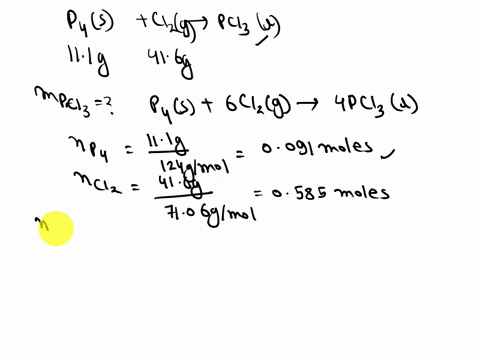 P4(s) + Cl2(g) → PCl3(l) ✓
11.1g 41.6g
mPCl3 = ? P4(s) + 6Cl2(g) → 4PCl3(l)
nP4 = 11.1g / 124g/mol = 0.091 moles ✓
nCl2 = 41.6g / 71.06g/mol = 0.585 moles
n